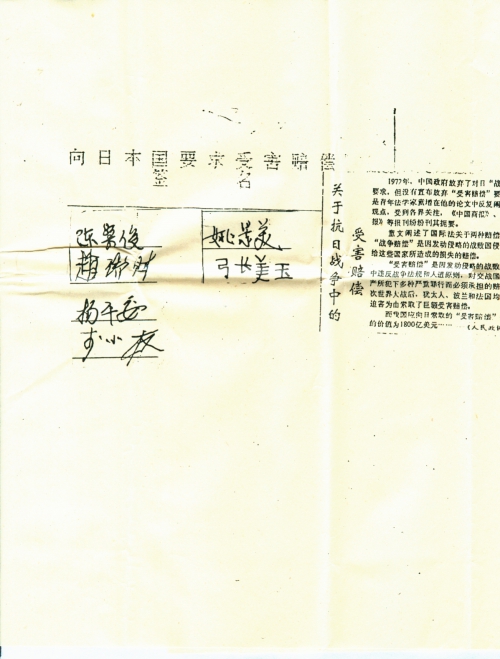 向日本国要求受害赔偿
签名
张景美
弓长美玉
杨平安
李小
关于抗日战争中的
受害赔偿
1977年，中国政府放弃了对日“战
要求，但没有宣布放弃“受害赔偿”要
是青年法学家童增在他的论文中反复阐
观点，受到各界关注，《中国商报》、
报》等报刊纷纷刊其扼要。
意文阐述了国际法关于两种赔偿
“战争赔偿”是因发动侵略的战败国侵
给这些国家所造成的损失的赔偿。
“受害赔偿”是因发动侵略的战败
中违反战争法规和人道原则，对交战国
严所犯下多种严重罪行而必须承担的赔
次世界大战后，犹太人、波兰和法国均
迫害为由索取了巨额受害赔偿。
而我国应向日索取的“受害赔偿”
的价值为1800亿美元……（人民政协